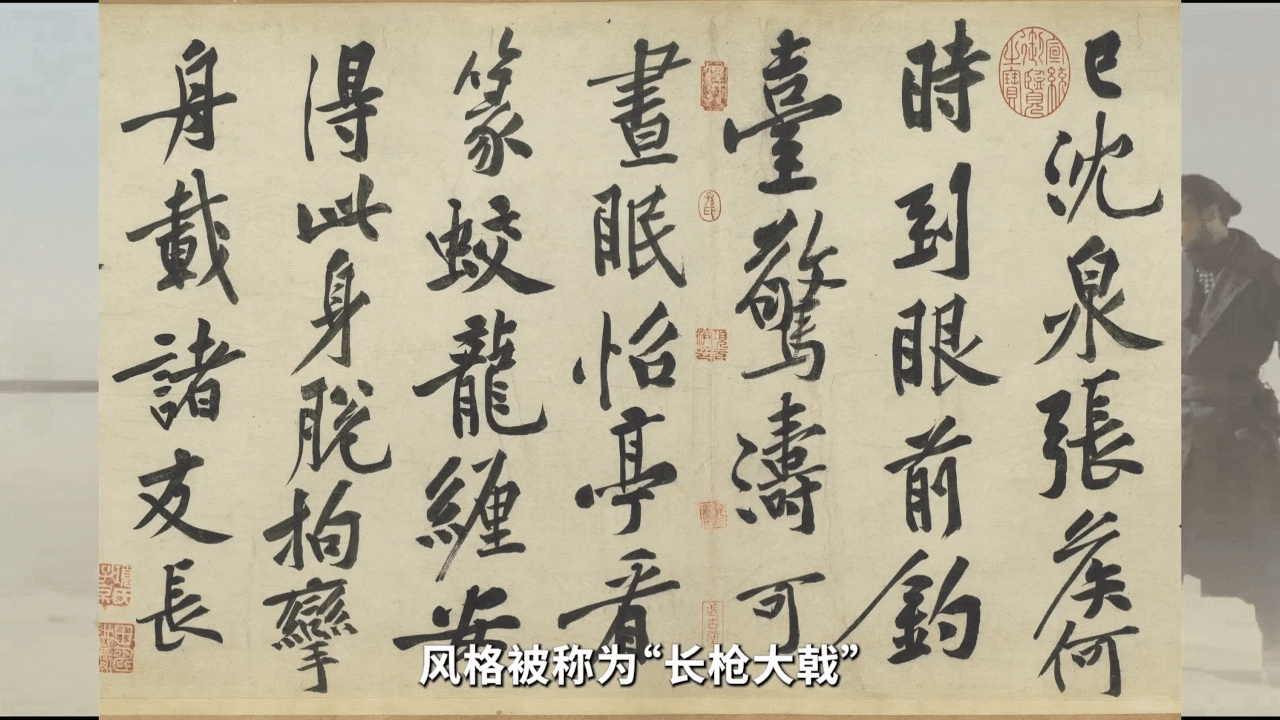 已沈泉張侯何
時到眼前釣
臺驚濤可
晝眠怡亭看
篆蛟龍纏安
得此身脫拘攣
舟載諸友長
宣統御覽之寶
风格被称为“长枪大戟”